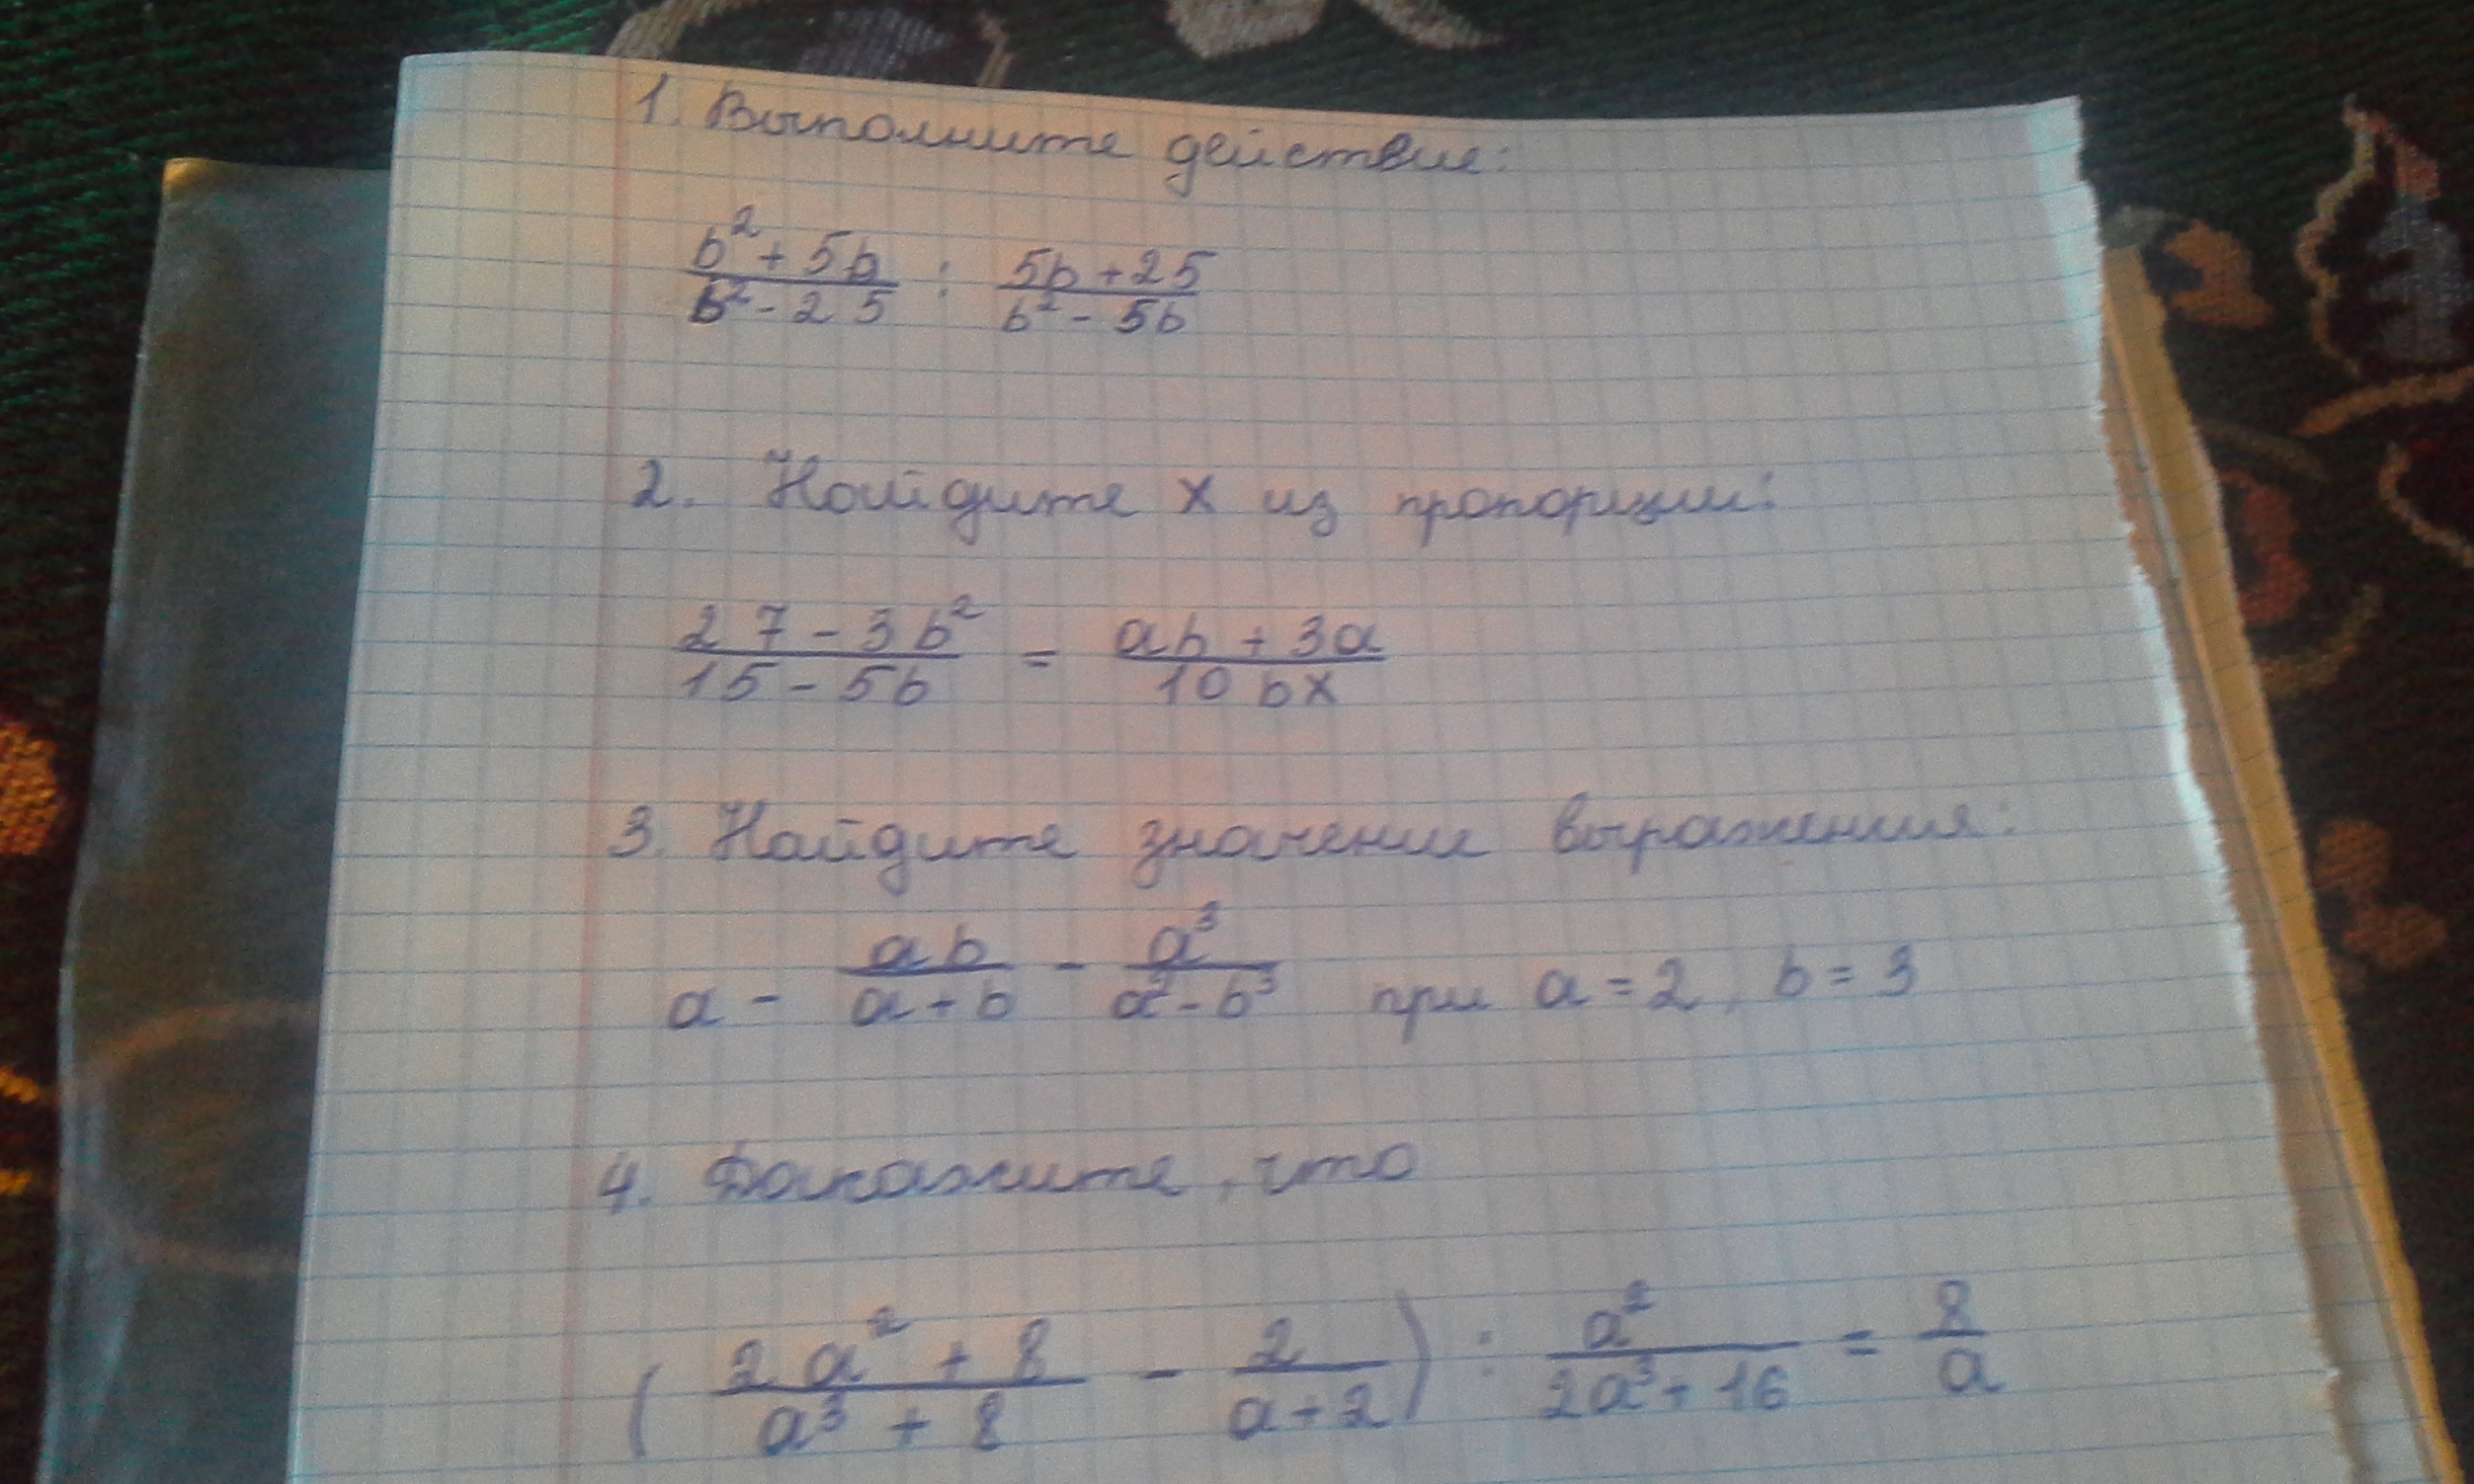 1. Выполните действие:
b² + 5b / b² - 25 : 5b + 25 / b² - 5b
2. Найдите x из пропорции:
27 - 3b² / 15 - 5b = ab + 3a / 10bx
3. Найдите значение выражения:
a - ab / a + b - a³ / a² - b³ при a = 2, b = 3
4. Докажите, что
( 2a² + 8 / a³ + 8 - 2 / a + 2 ) : a² / 2a³ + 16 = 8 / a